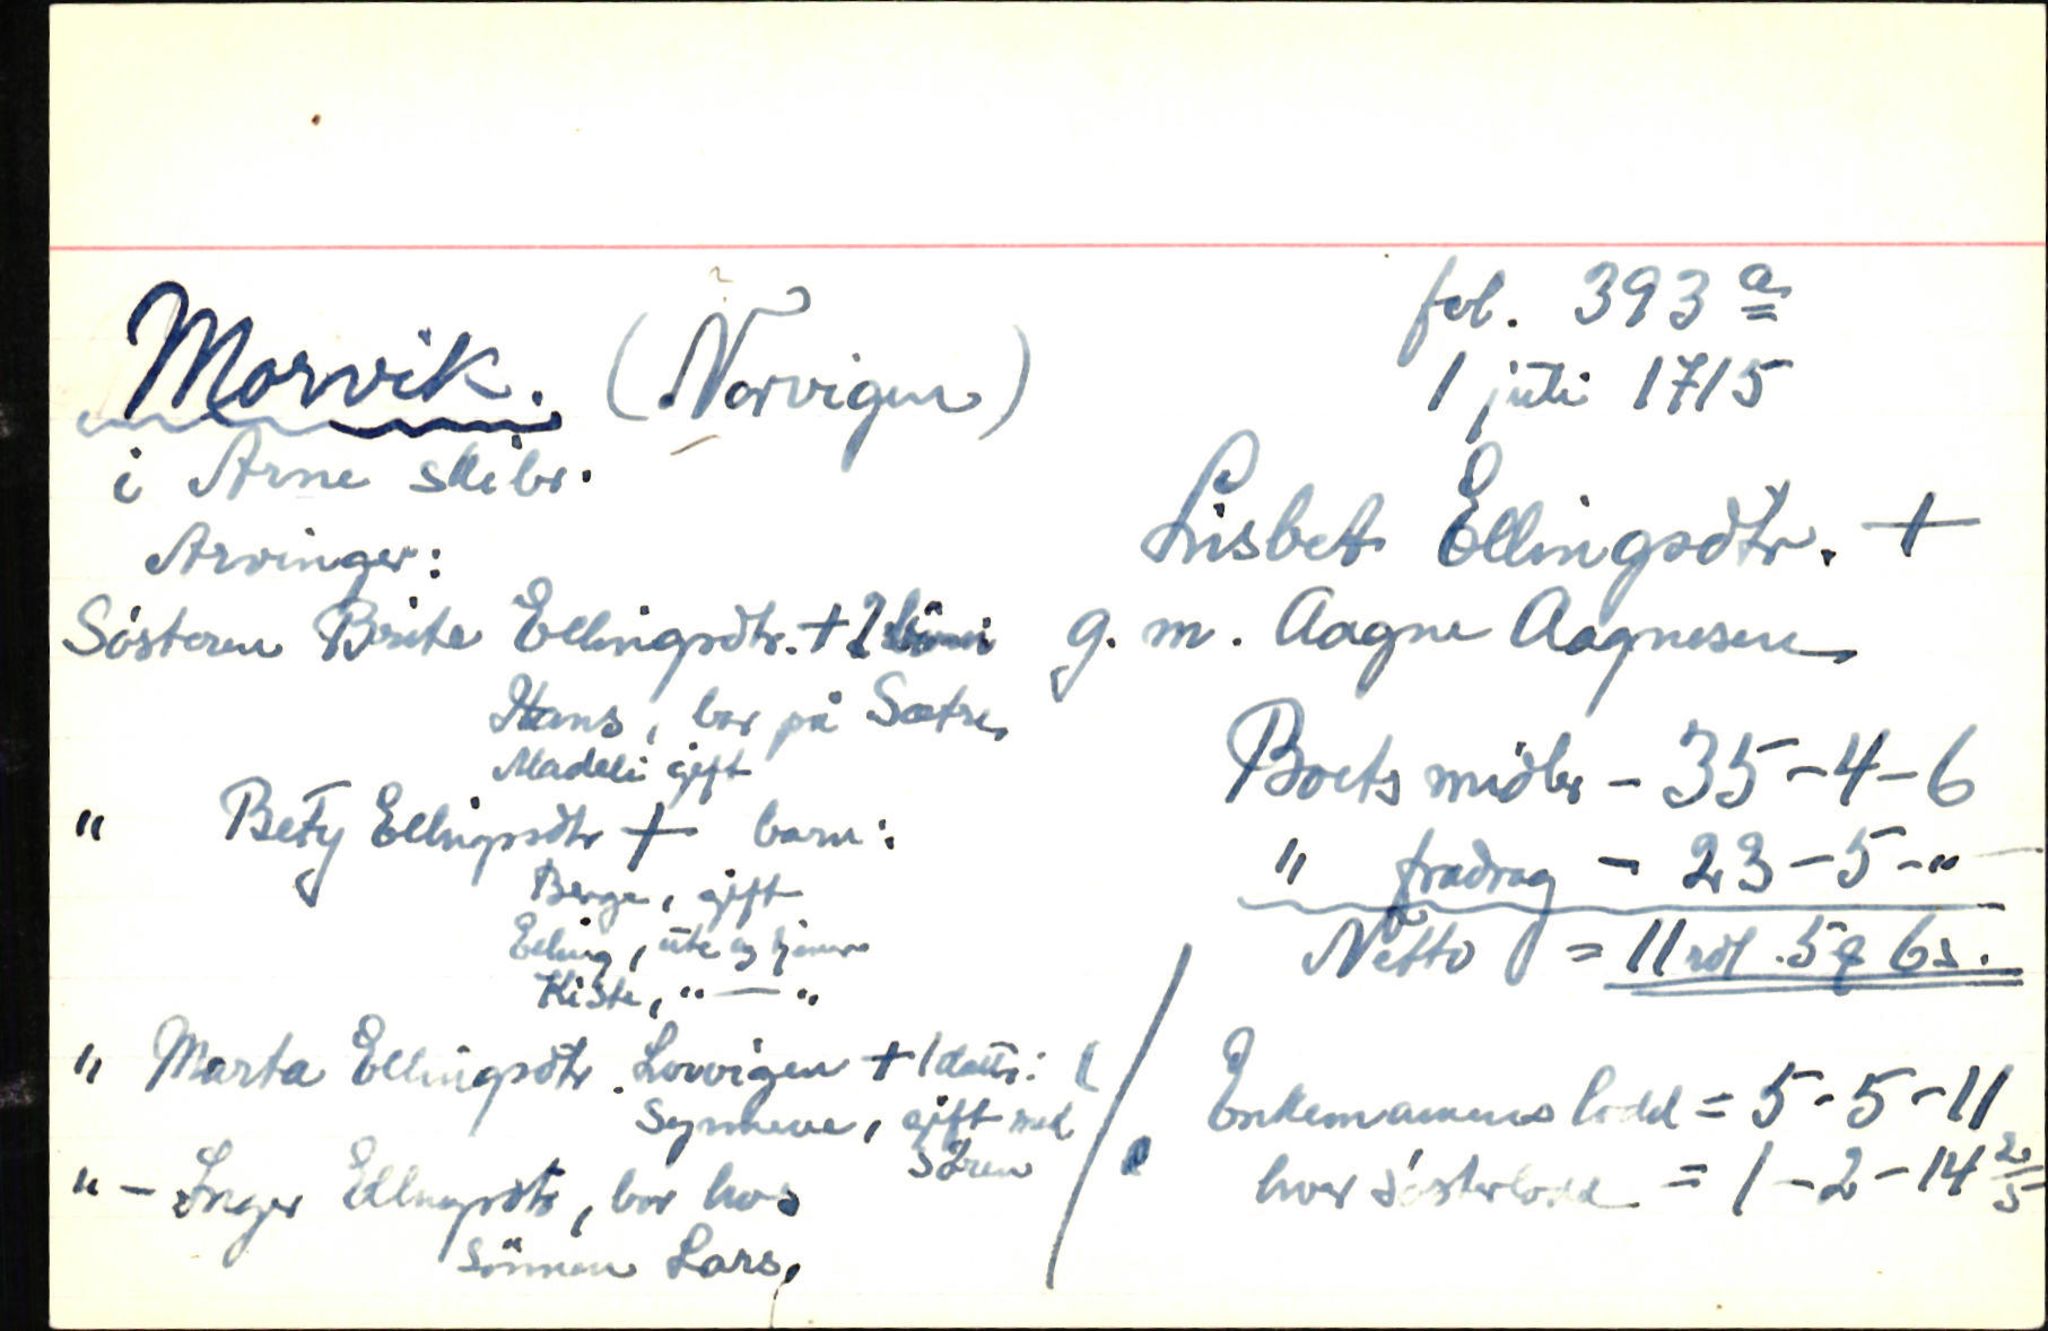 Morvik. (Norvigen)
i Arne skibr.
Arvinger:
Søsteren Brite Ellingsdtr. + 2
Hans, bor på Sætre,
Madeli gift
" Bety Ellingsdtr + barn:
Børge, gift
Elling, ute og tjener
Kiste, " — "
" Marta Ellingsdtr. Lovvigen + 1 dattr:
Synneve, gift med
Sören
" - Inger Ellingsdtr, bor hos
sönnen Lars,
fol. 393 a
1 juli 1715
Lisbet Ellingsdtr. +
g. m. Aagne Aagnesen,
Boets midler - 35-4-6
" fradrag - 23-5-"
Netto = 11 rdl. 5 q 6 s.
Enkemannens lodd = 5-5-11
hver sösterlodd = 1-2-14 2/5